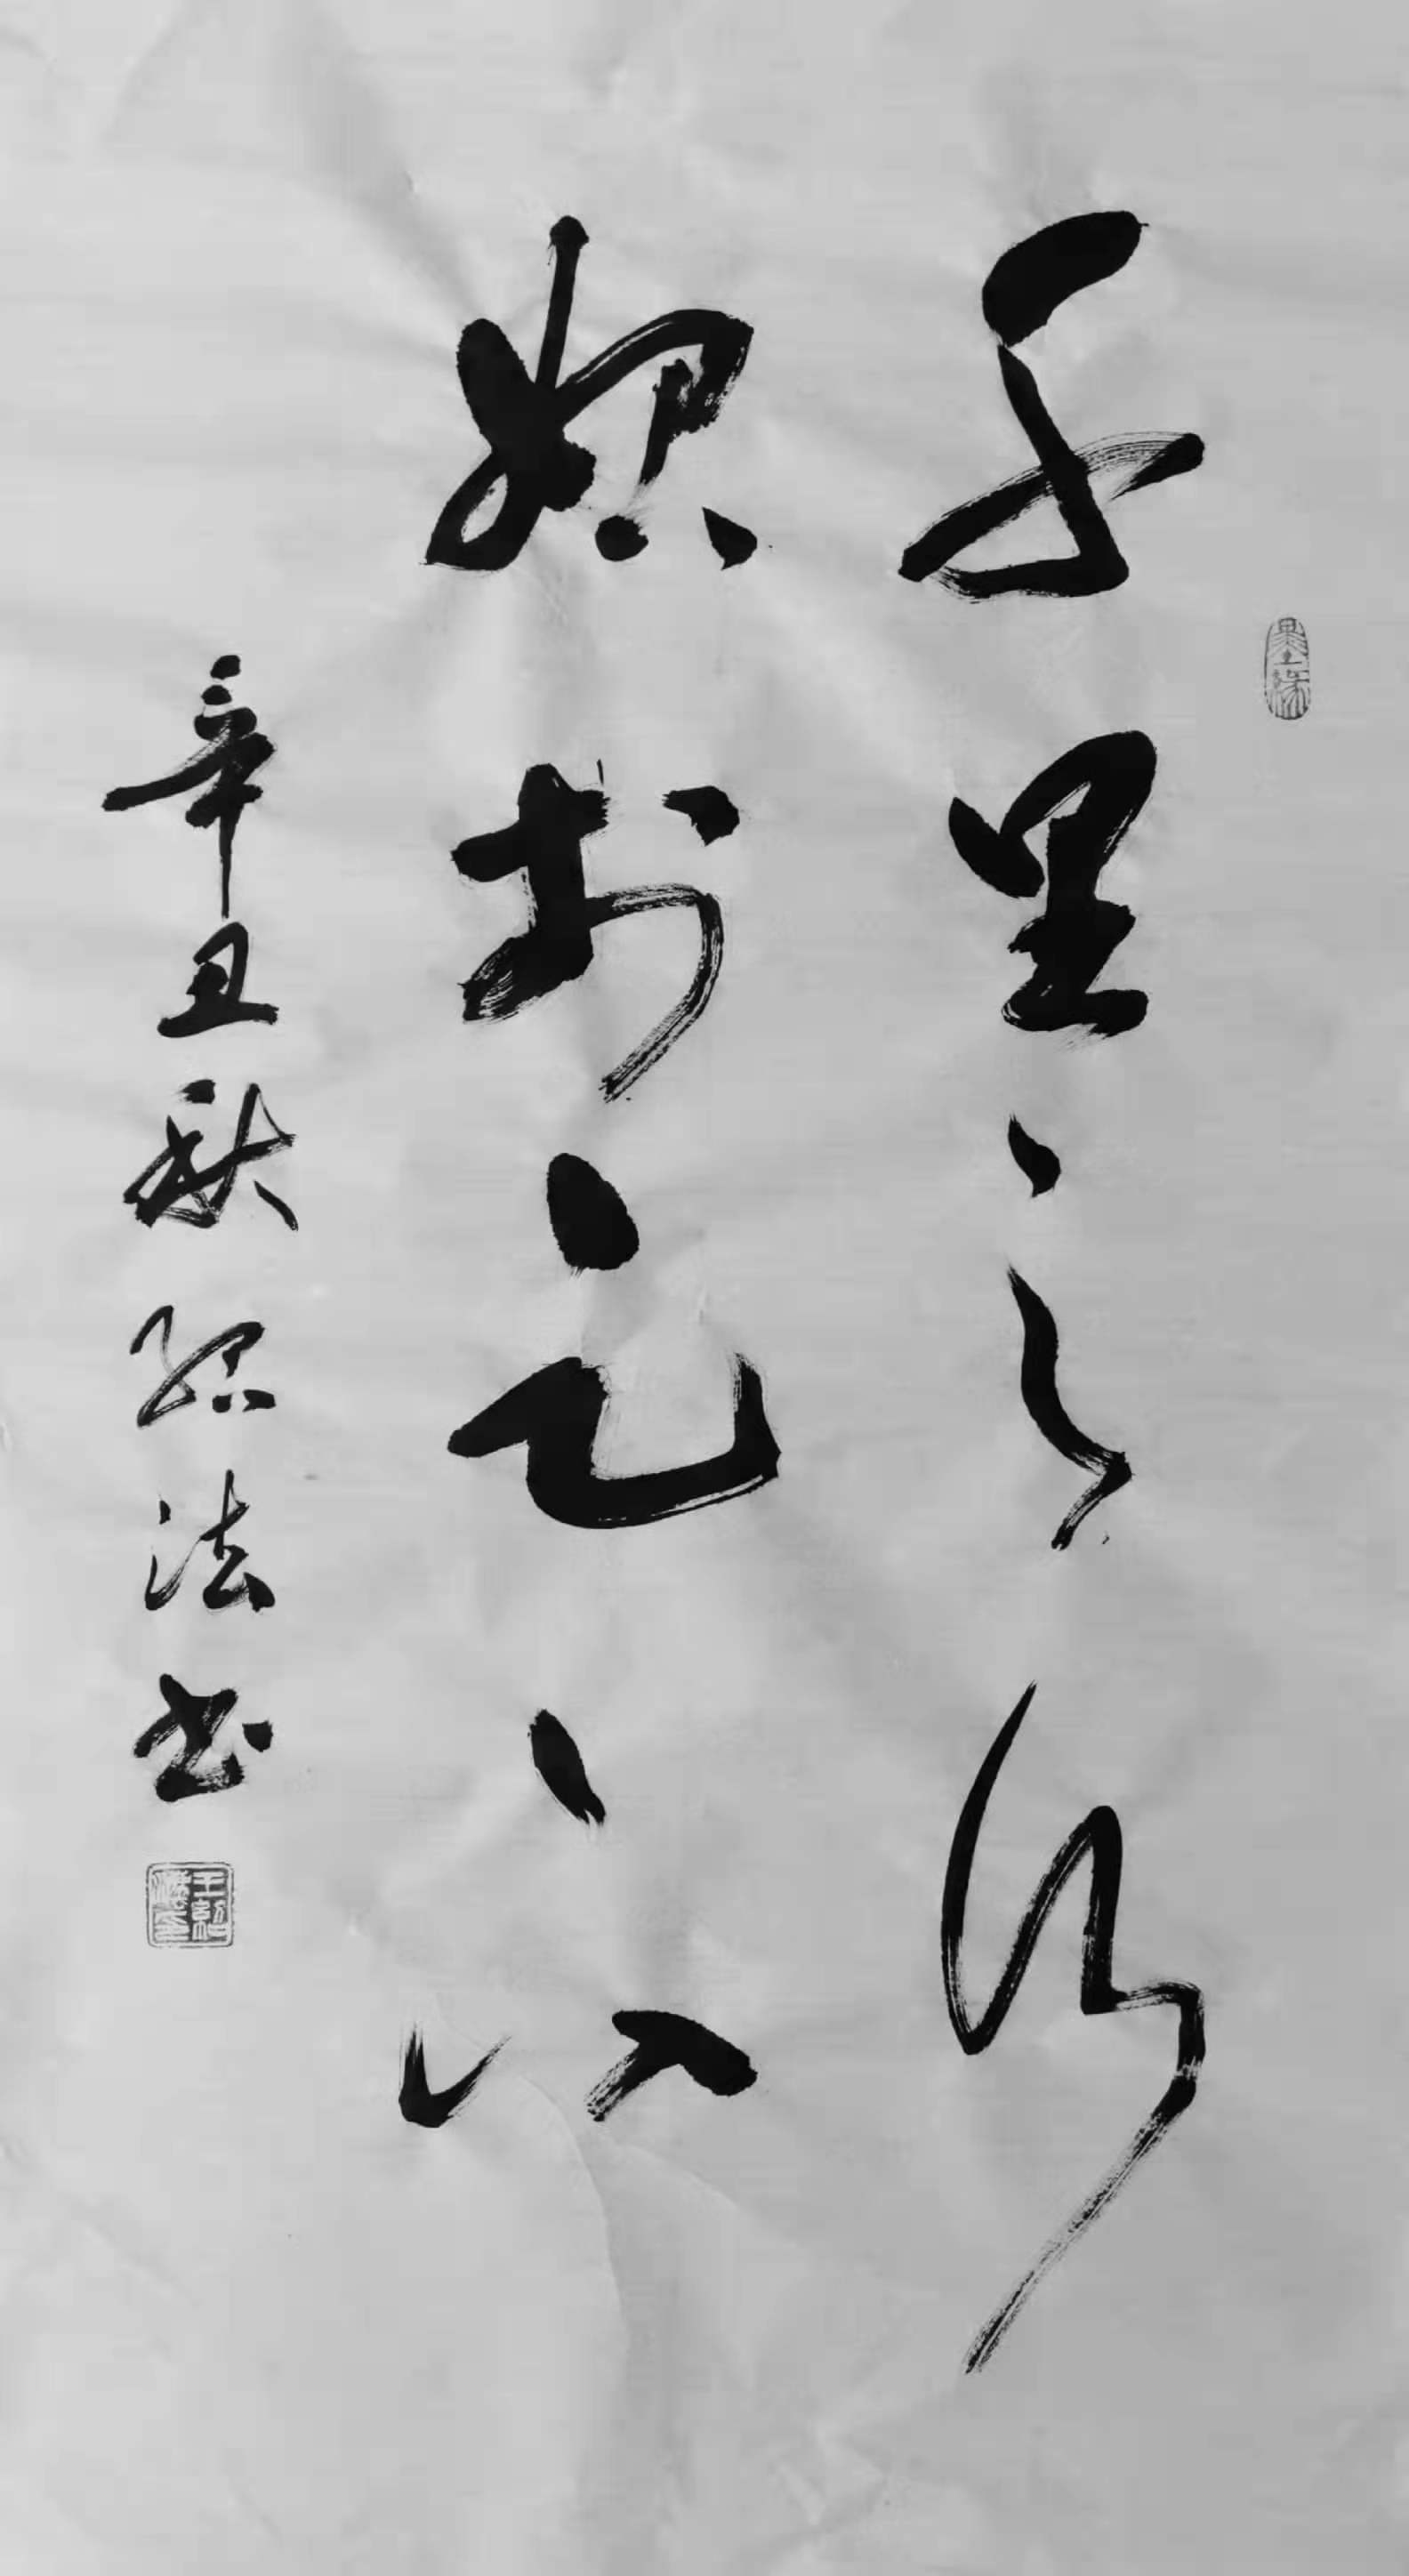 千里之行
始於足下
辛丑秋绍法书